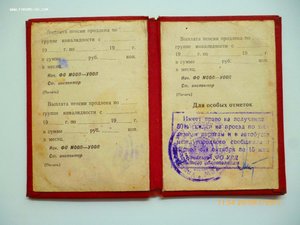 Выплата пенсии продлена по
группе инвалидности с
19 г. по 19 г.
в сумме руб. коп.
в месяц.
Нач. ФО МООП—УООП
Ст. инспектор
(Печать)
Выплата пенсии продлена по
группе инвалидности с
19 г. по 19 г.
в сумме руб. коп.
в месяц.
Нач. ФО МООП—УООП
Ст. инспектор
(Печать)
Выплата пенсии продлена по
группе инвалидности с
19 г. по 19 г.
в сумме руб. коп.
в месяц.
Нач. ФО МООП—УООП
Ст. инспектор
(Печать)
Для особых отметок
Имеет право на получение
50% скидки на проезд по
и в автобусах
международного сообщения
октября по 15 мая
ФО УВД